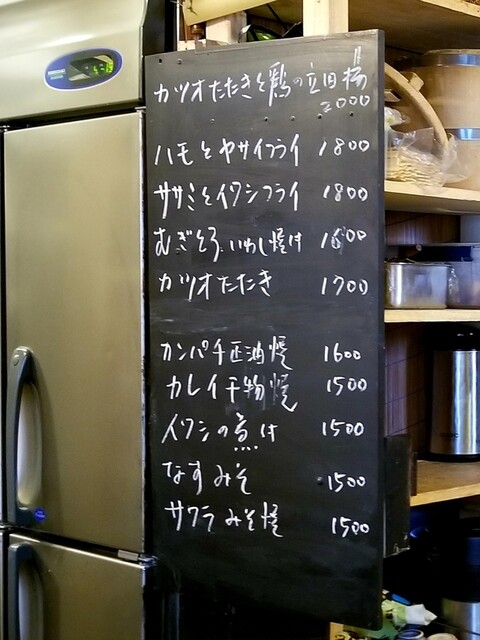 カツオたたきと鶏の立田揚
2000
ハモとヤサイフライ 1800
ササミとイワシフライ 1800
むぎとろ、いわし煮付 1600
カツオたたき 1700
カンパチ正油焼 1600
カレイ干物焼 1500
イワシの煮付 1500
なすみそ 1500
サワラみそ焼 1500